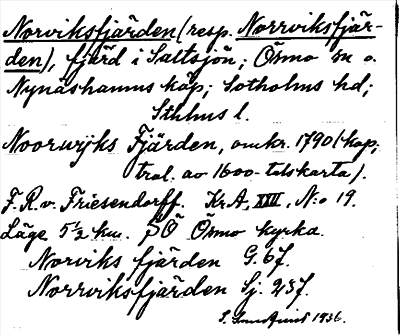 Norviksfjärden (resp. Norrviksfjär-
den), fjärd i Saltsjön; Ösmo sn o.
Nynäshamns köp; Sotholms hd;
Sthlms l.
Noorwijks Fjärden, omkr. 1790 (kop;
tral. av 1600-talskarta).
F. R. v. Friesendorff. Kr.A, XXII, N:o 19.
Läge 5 1/2 km. SÖ Ösmo kyrka.
Norviks fjärden G. 67.
Norrviksfjärden Sj. 237.
1936.